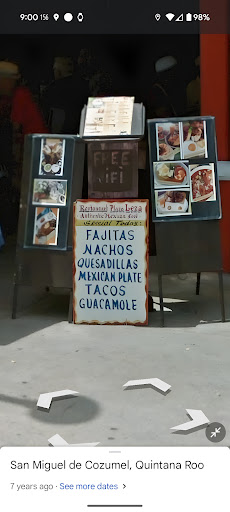 9:00 156
98%
FREE
WiFi
Restaurant Plaza Leza
Authentic Mexican Food
Special Today
FAJITAS
NACHOS
QUESADILLAS
MEXICAN PLATE
TACOS
GUACAMOLE
San Miguel de Cozumel, Quintana Roo
7 years ago · See more dates >